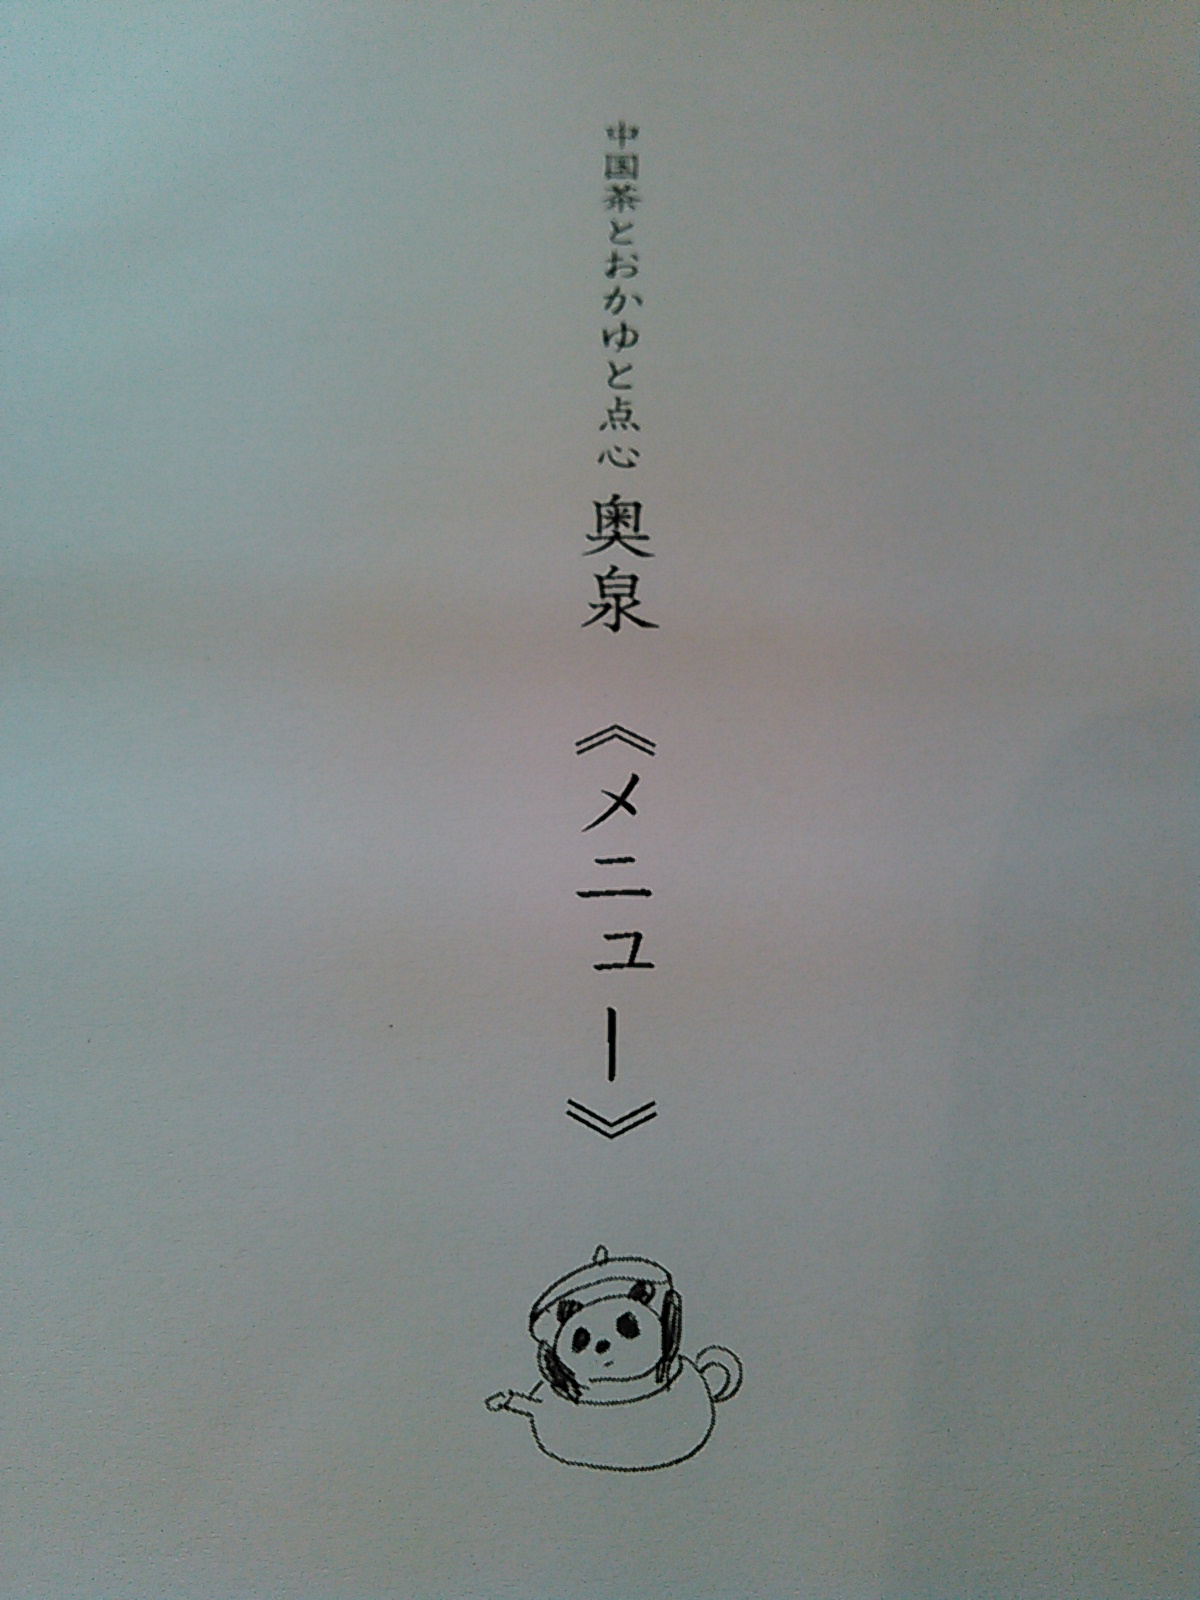 中国茶とおかゆと点心 奥泉 《メニュー》